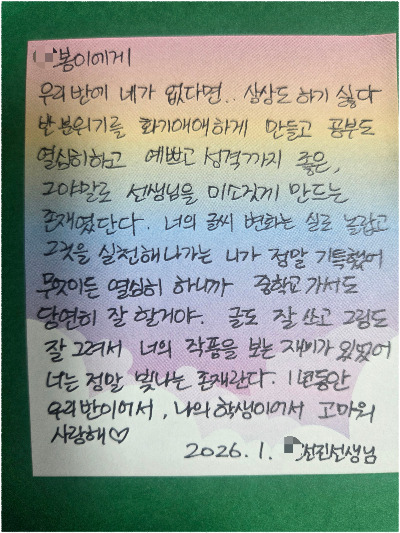 봉이에게
우리반에 네가 없다면.. 상상도 하기 싫다
반 분위기를 화기애애하게 만들고 공부도
열심히하고 예쁘고 성격까지 좋은,
그야말로 선생님을 미소짓게 만드는
존재였단다. 너의 글씨 변화는 실로 놀랍고
그것을 실천해나가는 니가 정말 기특했어
무엇이든 열심히 하니까 중학교 가서도
당연히 잘 할거야. 글도 잘 쓰고 그림도
잘 그려서 너의 작품을 보는 재미가 있었어
너는 정말 빛나는 존재란다. 1년동안
우리반이어서, 나의 학생이어서 고마워
사랑해♡
2026. 1. 선진선생님